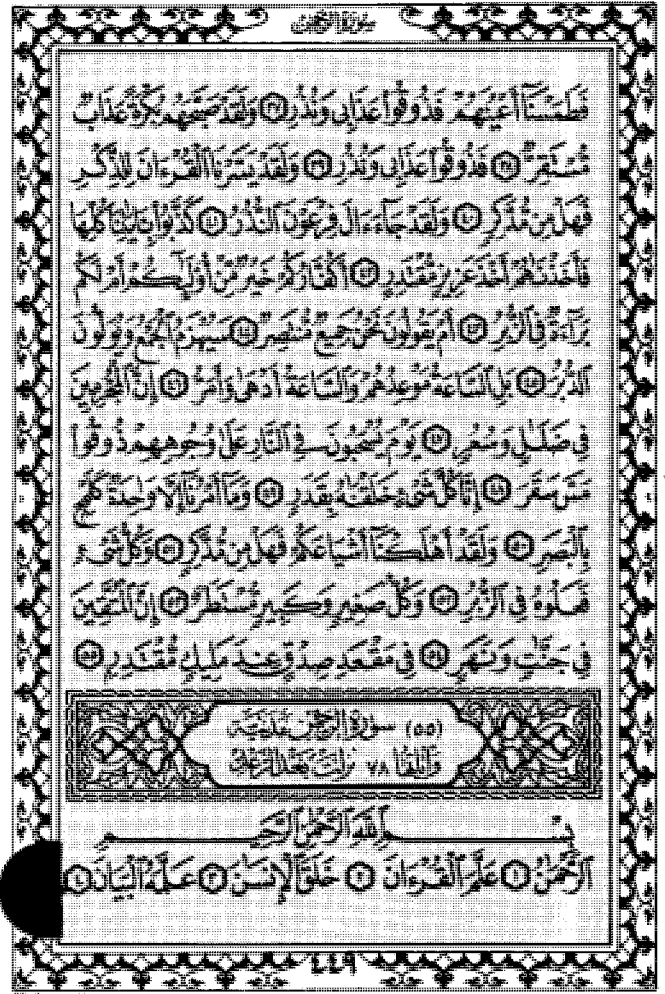 سورة الرحمن
فَطَمَسْنَآ أَعْيُنَهُمْ فَذُوقُوا۟ عَذَابِى وَنُذُرِ ٣٧ وَلَقَدْ صَبَّحَهُم بُكْرَةً عَذَابٌ
مُّسْتَقِرٌّ ٣٨ فَذُوقُوا۟ عَذَابِى وَنُذُرِ ٣٩ وَلَقَدْ يَسَّرْنَا ٱلْقُرْءَانَ لِلذِّكْرِ
فَهَلْ مِن مُّدَّكِرٍ ٤٠ وَلَقَدْ جَآءَ ءَالَ فِرْعَوْنَ ٱلنُّذُرُ ٤١ كَذَّبُوا۟ بِـَٔايَٰتِنَا كُلِّهَا
فَأَخَذْنَٰهُمْ أَخْذَ عَزِيزٍ مُّقْتَدِرٍ ٤٢ أَكُفَّارُكُمْ خَيْرٌ مِّنْ أُو۟لَٰٓئِكُمْ أَمْ لَكُم
بَرَآءَةٌ فِى ٱلزُّبُرِ ٤٣ أَمْ يَقُولُونَ نَحْنُ جَمِيعٌ مُّنتَصِرٌ ٤٤ سَيُهْزَمُ ٱلْجَمْعُ وَيُوَلُّونَ
ٱلدُّبُرَ ٤٥ بَلِ ٱلسَّاعَةُ مَوْعِدُهُمْ وَٱلسَّاعَةُ أَدْهَىٰ وَأَمَرُّ ٤٦ إِنَّ ٱلْمُجْرِمِينَ
فِى ضَلَٰلٍ وَسُعُرٍ ٤٧ يَوْمَ يُسْحَبُونَ فِى ٱلنَّارِ عَلَىٰ وُجُوهِهِمْ ذُوقُوا۟
مَسَّ سَقَرَ ٤٨ إِنَّا كُلَّ شَىْءٍ خَلَقْنَٰهُ بِقَدَرٍ ٤٩ وَمَآ أَمْرُنَآ إِلَّا وَٰحِدَةٌ كَلَمْحٍۭ
بِٱلْبَصَرِ ٥٠ وَلَقَدْ أَهْلَكْنَآ أَشْيَاعَكُمْ فَهَلْ مِن مُّدَّكِرٍ ٥١ وَكُلُّ شَىْءٍ
فَعَلُوهُ فِى ٱلزُّبُرِ ٥٢ وَكُلُّ صَغِيرٍ وَكَبِيرٍ مُّسْتَطَرٌ ٥٣ إِنَّ ٱلْمُتَّقِينَ
فِى جَنَّٰتٍ وَنَهَرٍ ٥٤ فِى مَقْعَدِ صِدْقٍ عِندَ مَلِيكٍ مُّقْتَدِرٍۭ ٥٥
(٥٥) سورة الرحمن مدنية
وآياتها ٧٨ نزلت بعد الرعد
بِسْمِ ٱللَّهِ ٱلرَّحْمَٰنِ ٱلرَّحِيمِ
ٱلرَّحْمَٰنُ ١ عَلَّمَ ٱلْقُرْءَانَ ٢ خَلَقَ ٱلْإِنسَٰنَ ٣ عَلَّمَهُ ٱلْبَيَانَ ٤
٤٤٩